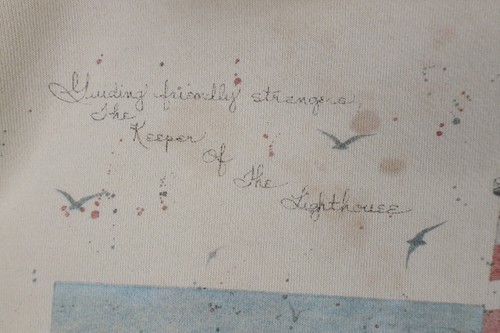 Guiding friendly strangers,
The
Keeper
of
The
Lighthouse